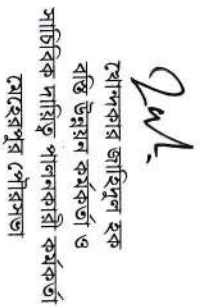 খোন্দকার জাহিদুল হক
বস্তি উন্নয়ন কর্মকর্তা ও
সাচিবিক দায়িত্ব পালনকারি কর্মকর্তা
মেহেরপুর পৌরসভা